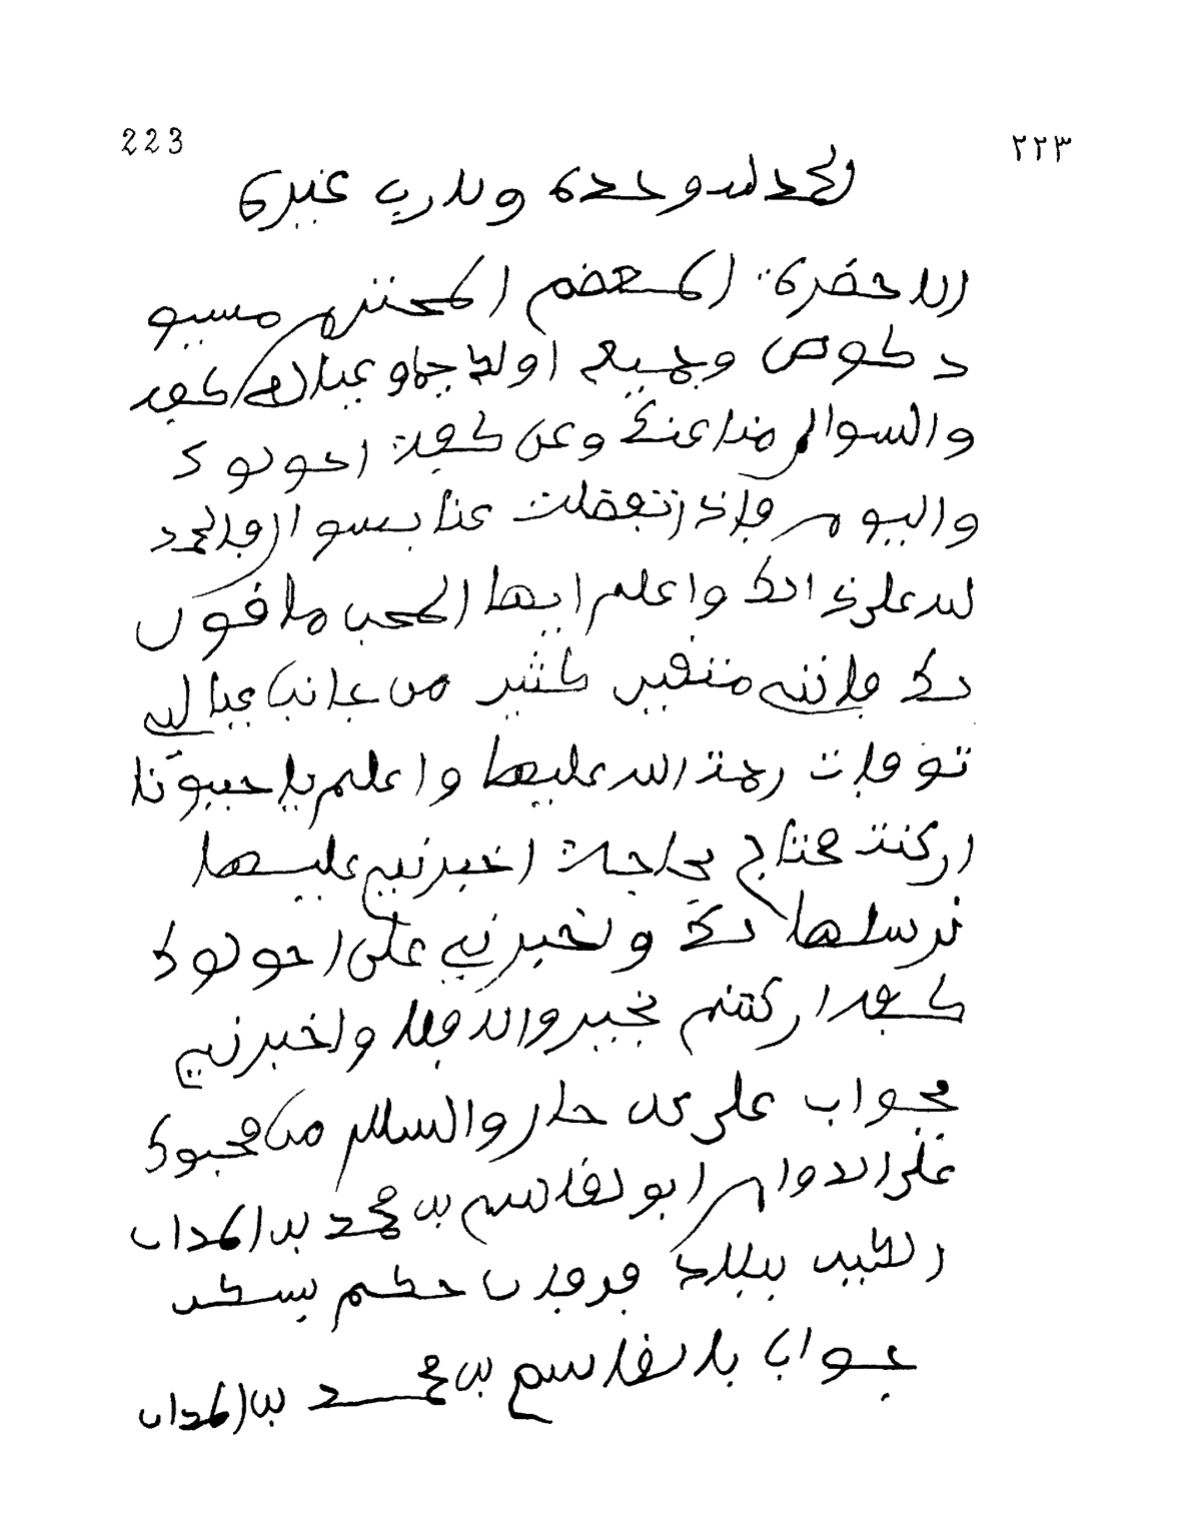 223 ٢٢٣
الحمد لله وحده ولا رب غيره
الا حضرة المعضم المحترم مسيو
د كوص وجميع اولاد
والسوال منا عنك وعن كفية احولوك
واليوم فاذ تفقلت عنا بسوال فالحمد
لله على ذالك واعلم ايها المحب ما فوق
دك فانني متقير كثير من عيالي
توفات رحمة الله عليها واعلم يا حبيونا
ان كنت محتاج بحاجة اخبرني عليها
نرسلها دك وتخبرني على احولوك
كفه ان كنتم بخير والله فلا واخبرني
بجواب على كل حال والسلام من محبوك
على الدوام ابولقاسم بن محمد بن المداب
ببلاد حكم بسكر
جواب بلقاسم بن محمد بن المداب